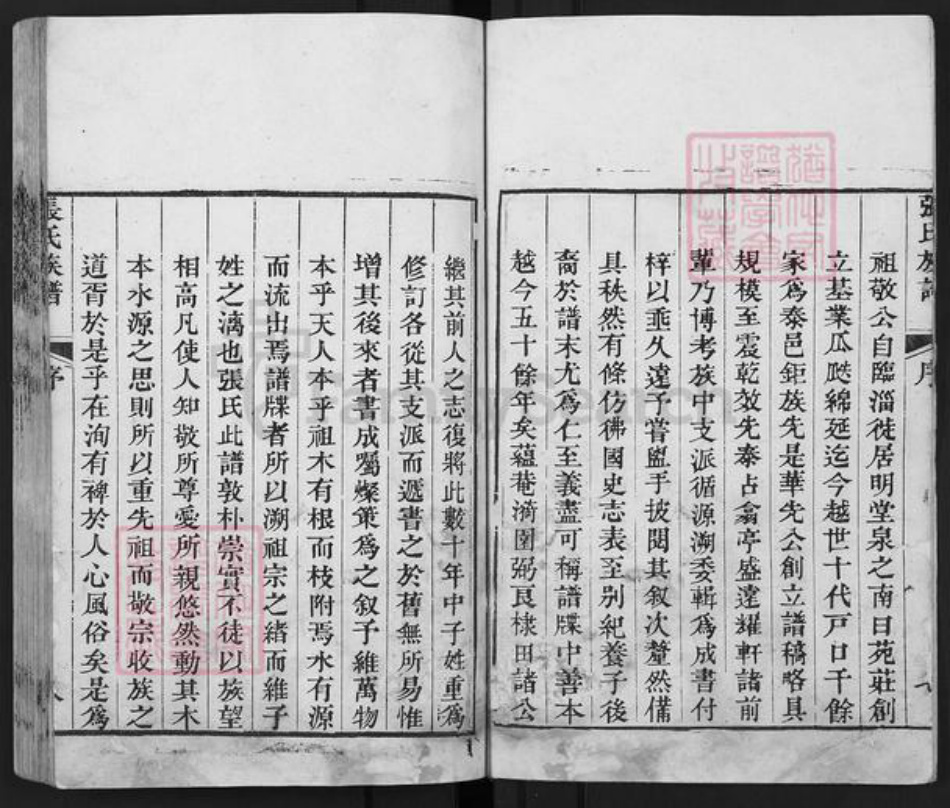 張氏族譜
序
祖敬公自臨淄徙居明堂泉之南日苑莊創
立基業瓜瓞綿延迄今越世十代戸口千餘
家爲泰邑鉅族先是華先公創立譜稿略具
規模至震乾效先泰占翕亭盛達耀軒諸前
輩乃博考族中支派循源溯委輯爲成書付
梓以垂久遠予嘗盥手披閱其叙次釐然備
具秩然有條仿彿國史志表至别紀養子後
裔於譜末尤爲仁至義盡可稱譜牒中善本
越今五十餘年矣蘊菴漪園弼艮棣田諸公
繼其前人之志復將此數十年中子姓重爲
修訂各從其支派而遞書之於舊無所易惟
增其後來者書成囑燦策爲之叙予維萬物
本乎天人本乎祖木有根而枝附焉水有源
而流出焉譜牒者所以溯祖宗之緒而維子
姓之漓也張氏此譜敦朴崇實不徒以族望
相高凡使人知敬所尊愛所親悠然動其木
本水源之思則所以重先祖而敬宗收族之
道胥於是乎在洵有裨於人心風俗矣是爲
張氏族譜
序
八